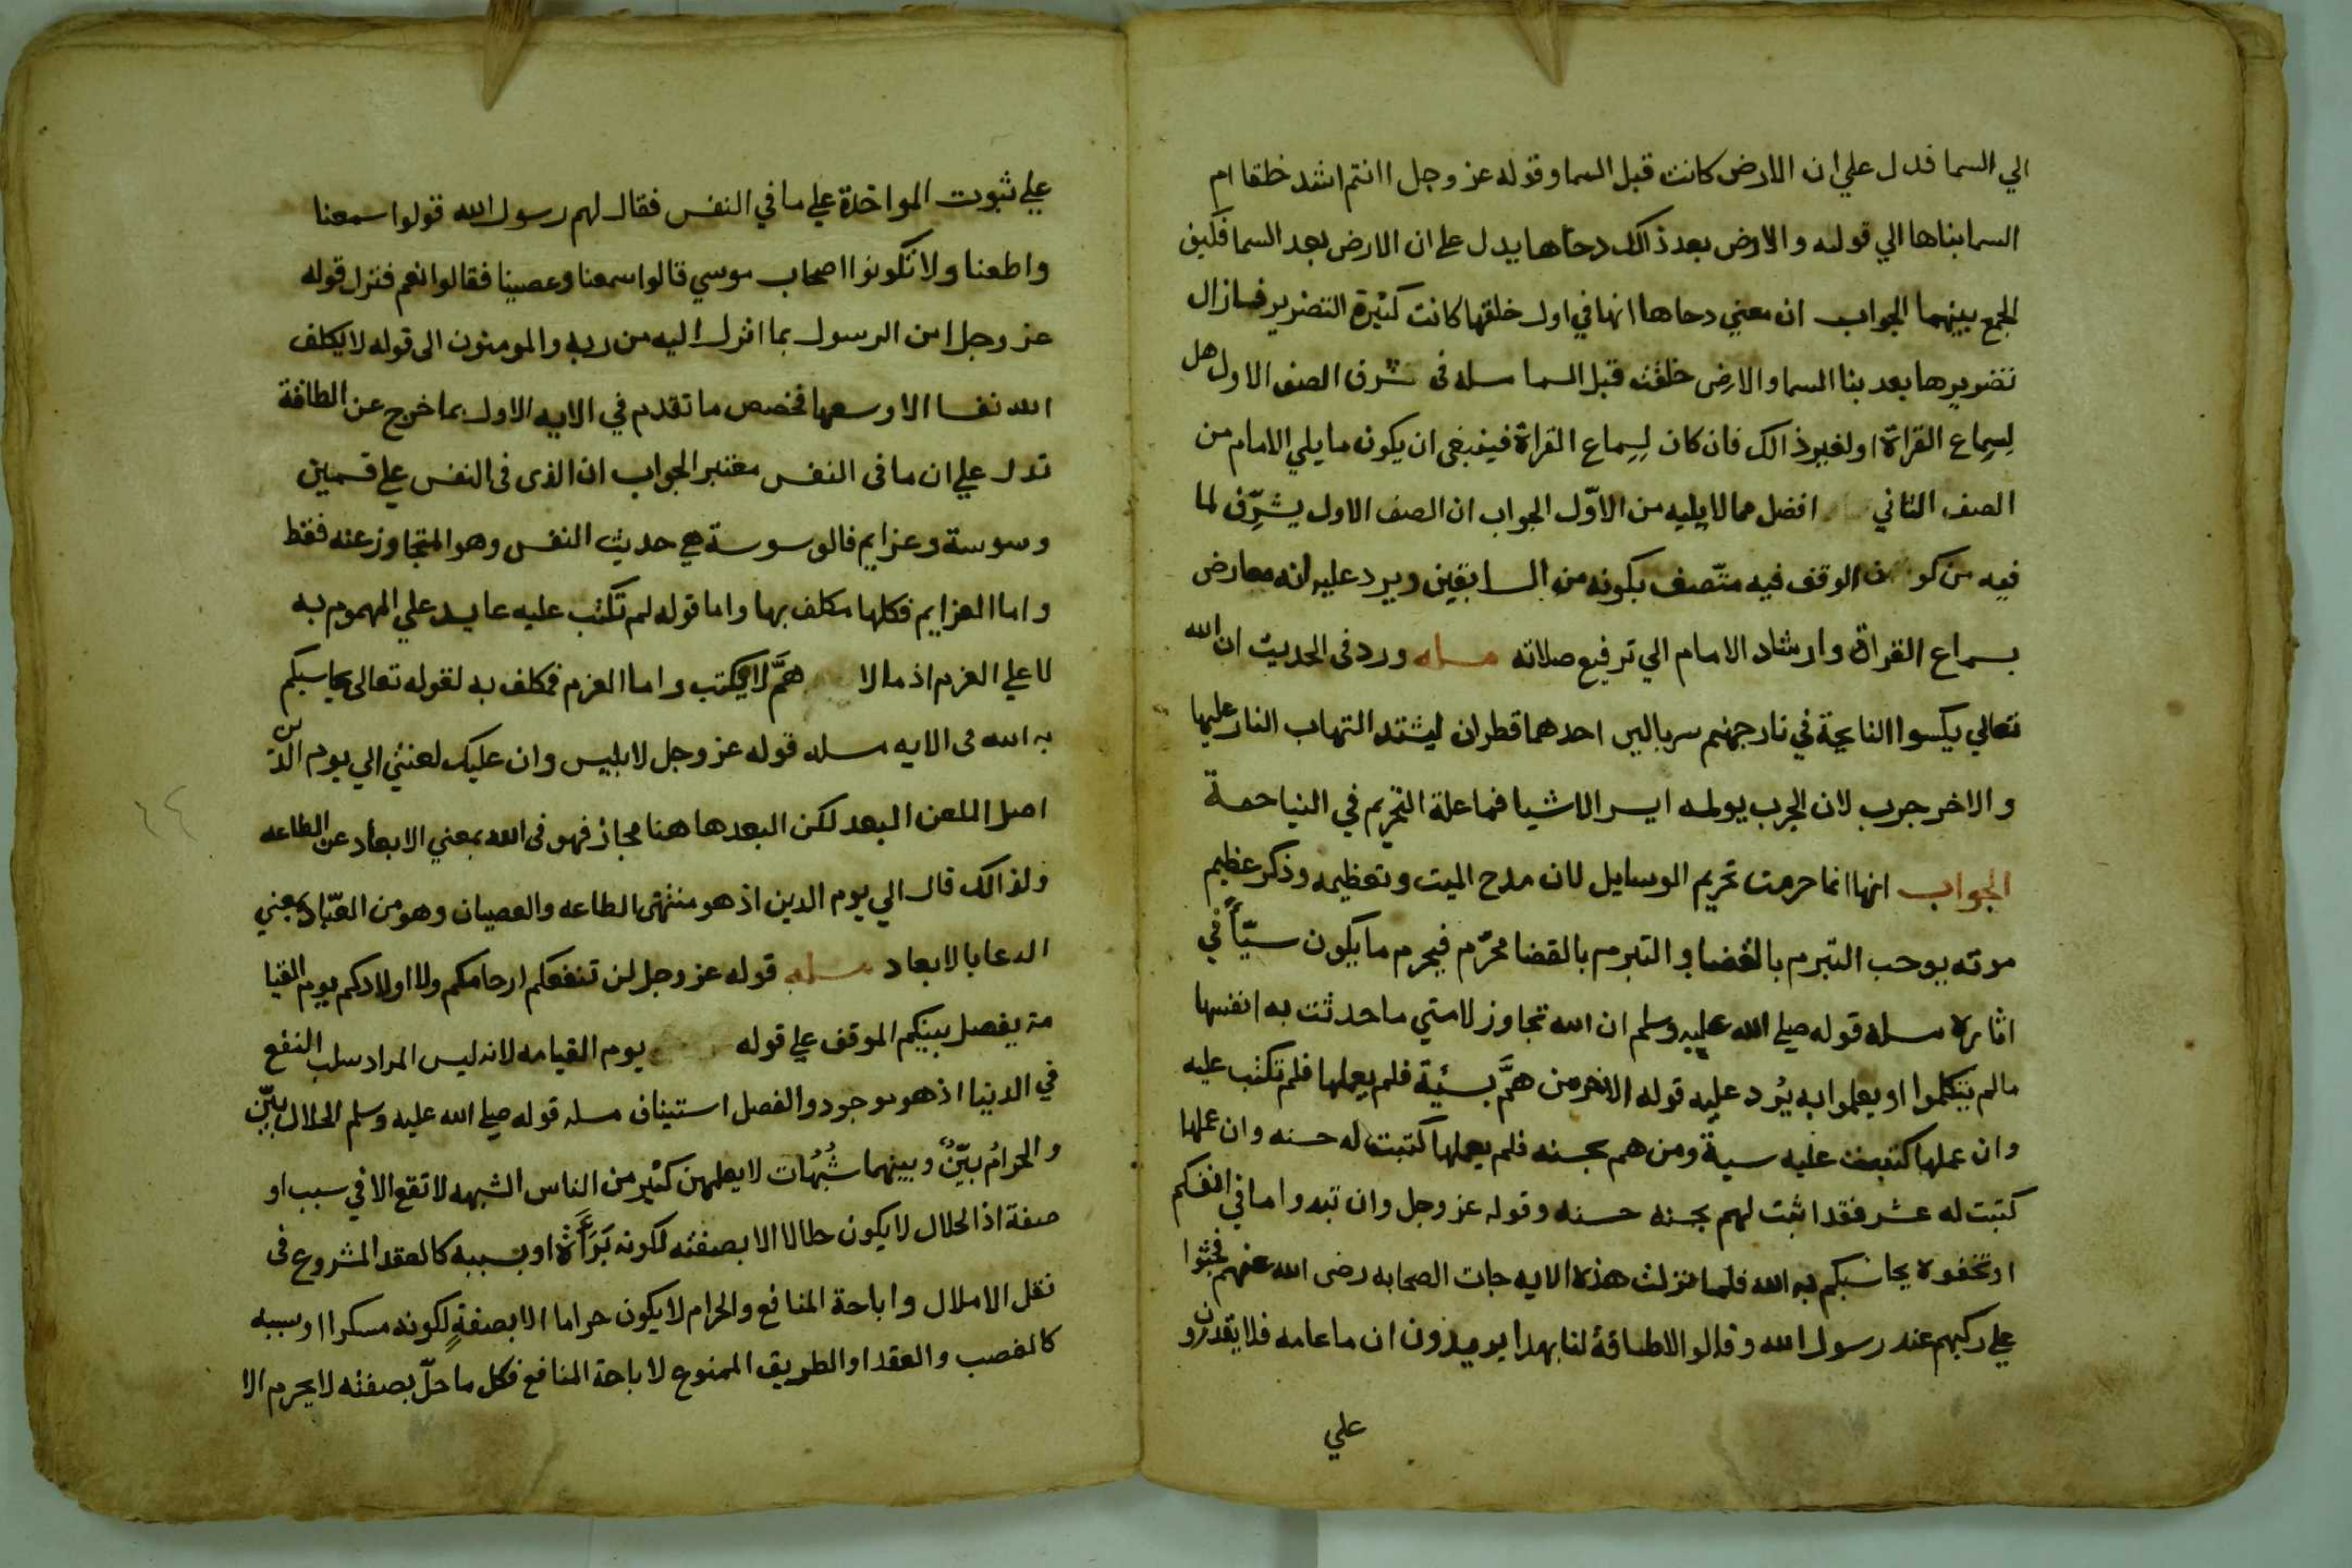 الي السما فدل علي ان الارض كانت قبل السما وقوله عز وجل اانتم اشد خلقا ام
السما بناها الي قوله والارض بعد ذالك دحاها يدل على ان الارض بعد السما فكيف
الجمع بينهما الجواب ان معني دحاها انها في اول خلقها كانت كثيرة التضرير فازال
تضريرها بعد بنا السما والارض خلقت قبل السما مسله في شرف الصف الاول هل
لسماع القراة او لغير ذالك فان كان لسماع القراة فينبغي ان يكون ما يلي الامام من
الصف الثاني افضل مما لا يليه من الاوّل الجواب ان الصف الاول يشرّف لما
فيه من الوقف فيه متّصف بكونه من السابقين ويرد عليه انه معارض
بسماع القراة وارشاد الامام الي ترفيع صلاته مسله ورد في الحديث ان الله
تعالي يكسوا النايحة في نار جهنم سربالين احدهما قطران ليشتد التهاب النار عليها
والاخر جرب لان الجرب يولمه ايسر الاشيا فما علة التحريم في النياحة
الجواب انها انما حرمت تحريم الوسايل لان مدح الميت وتعظيمه وذكر عظيم
موته يوجب التبرم بالقضا والتبرم بالقضا محرّم فيحرم ما يكون سببًا في
اثاره مسله قوله صلي الله عليه وسلم ان الله تجاوز لامتي ما حدثت به انفسها
مالم يتكلموا او يعملوا به يُرد عليه قوله الاخر من همَّ بسئية فلم يعملها فلم تكتب عليه
وان عملها كتبت عليه سية ومن هم بحسنه فلم يعملها كتبت له حسنه وان عملها
كتبت له عشر فقد اثبت لهم بحسنه حسنه وقوله عز وجل وان تبدوا ما في انفسكم
او تخفوه يحاسبكم به الله فلما نزلت هذه الايه جات الصحابه رضى الله عنهم فجثوا
علي ركبهم عند رسول الله وقالوا لاطاقة لنا بهذا يريدون ان ما عامه فلا يقدرون
علي
علي ثبوت المواخذة علي ما في النفس فقال لهم رسول الله قولوا سمعنا
واطعنا ولا تكونوا اصحاب موسي قالوا سمعنا وعصينا فقالوا نعم فنزل قوله
عز وجل امن الرسول بما انزل اليه من ربه والمومنون الى قوله لا يكلف
الله نفسا الا وسعها فخصص ما تقدم في الايه الاول بما خرج عن الطاقة
تدل علي ان ما فى النفس مغتبر الجواب ان الذى فى النفس علي قسمين
وسوسة وعزايم فالوسوسة هي حديث النفس وهو المتجاوز عنه فقط
واما العزايم فكلها مكلف بها واما قوله لم تكتب عليه عايد علي المهموم به
لا علي العزم اذ مالا همَّ لا يكتب واما العزم فمكلف به لقوله تعالى يحاسبكم
به الله فى الايه مسله قوله عز وجل لابليس وان عليك لعنتي الي يوم الدين
اصل اللعن البعد لكن البعد هاهنا مجاز فهو فى الله بمعني الابعاد عن الطاعه
ولذالك قال الي يوم الدين اذ هو منتهى الطاعه والعصيان وهو من العبّاد بمعني
الدعا بالابعاد مسله قوله عز وجل لن تنفعكم ارحامكم ولا اولادكم يوم القيا
مة يفصل بينكم الموقف علي قوله يوم القيامه لانه ليس المراد سلب النفع
في الدنيا اذ هو موجود والفصل استيناف مسله قوله صلي الله عليه وسلم الحلال بيّن
والحرامُ بيّنٌ وبينهما شُبُهات لا يعلمهن كثير من الناس الشبهه لا تقع الا في سبب او
صفة اذ الحلال لا يكون حلالا الا بصفته لكونه او بسببه كالعقد المشروع فى
نقل الاملال واباحة المنافع والحرام لا يكون حراما الا بصفةٍ لكونه مسكرا او سببه
كالغصب والعقد او الطريق الممنوع لاباحة المنافع فكل ما حلّ بصفته لا يحرم الا